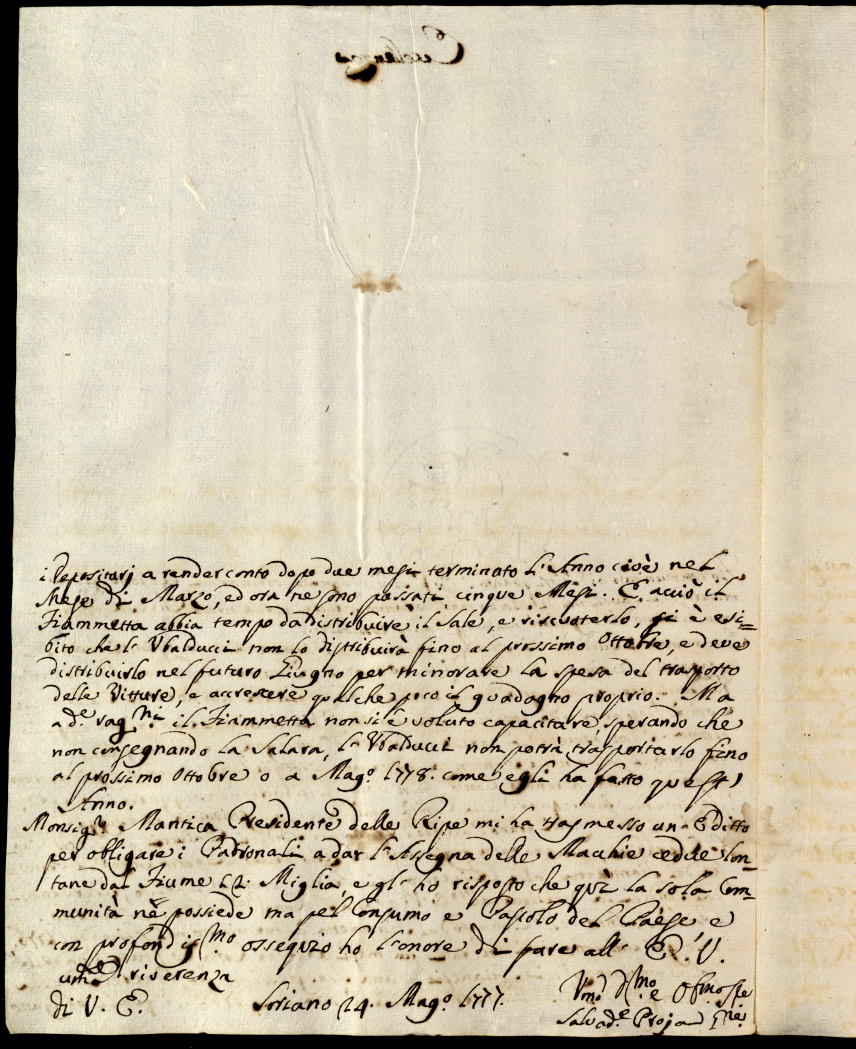 i Depositarj a render conto dopo due mesi terminato l'Anno cioè nel
Mese di Marzo, ed ora ne sono passati cinque Mesi. E acciò il
Fiammetta abbia tempo da distribuire il Sale, e riscuoterlo, si è esi=
bito che l'Ubalducci non lo distribuirà fino al prossimo Ottobre, e deve
distribuirlo nel futuro Giugno per minorare la spesa del trasporto
delle Vitture, e accrescere qualche poco il guadagno proprio. Ma
a de. rag.ni il Fiammetta non si è voluto capacitare, sperando che
non consegnando la Salara, l'Ubalducci non potrà trasportarlo fino
al prossimo Ottobre o a Mag.o 1778. come egli ha fatto quest'
Anno.
Monsig.r Mantica Presidente delle Ripe mi ha trasmesso un Editto
per obligare i Padronali a dar l'Assegna delle Macchie cedue lon=
tane dal Fiume 12. Miglia, e gl'ho risposto che quì la sola Com=
munità nè possiede ma pel Consumo e Pascolo del Paese, e
con profondis.mo ossequio ho l'onore di fare all' E. V.
riverenza
di V. E. Soriano 24. Mag.o 1777.
Salvad.e Proja